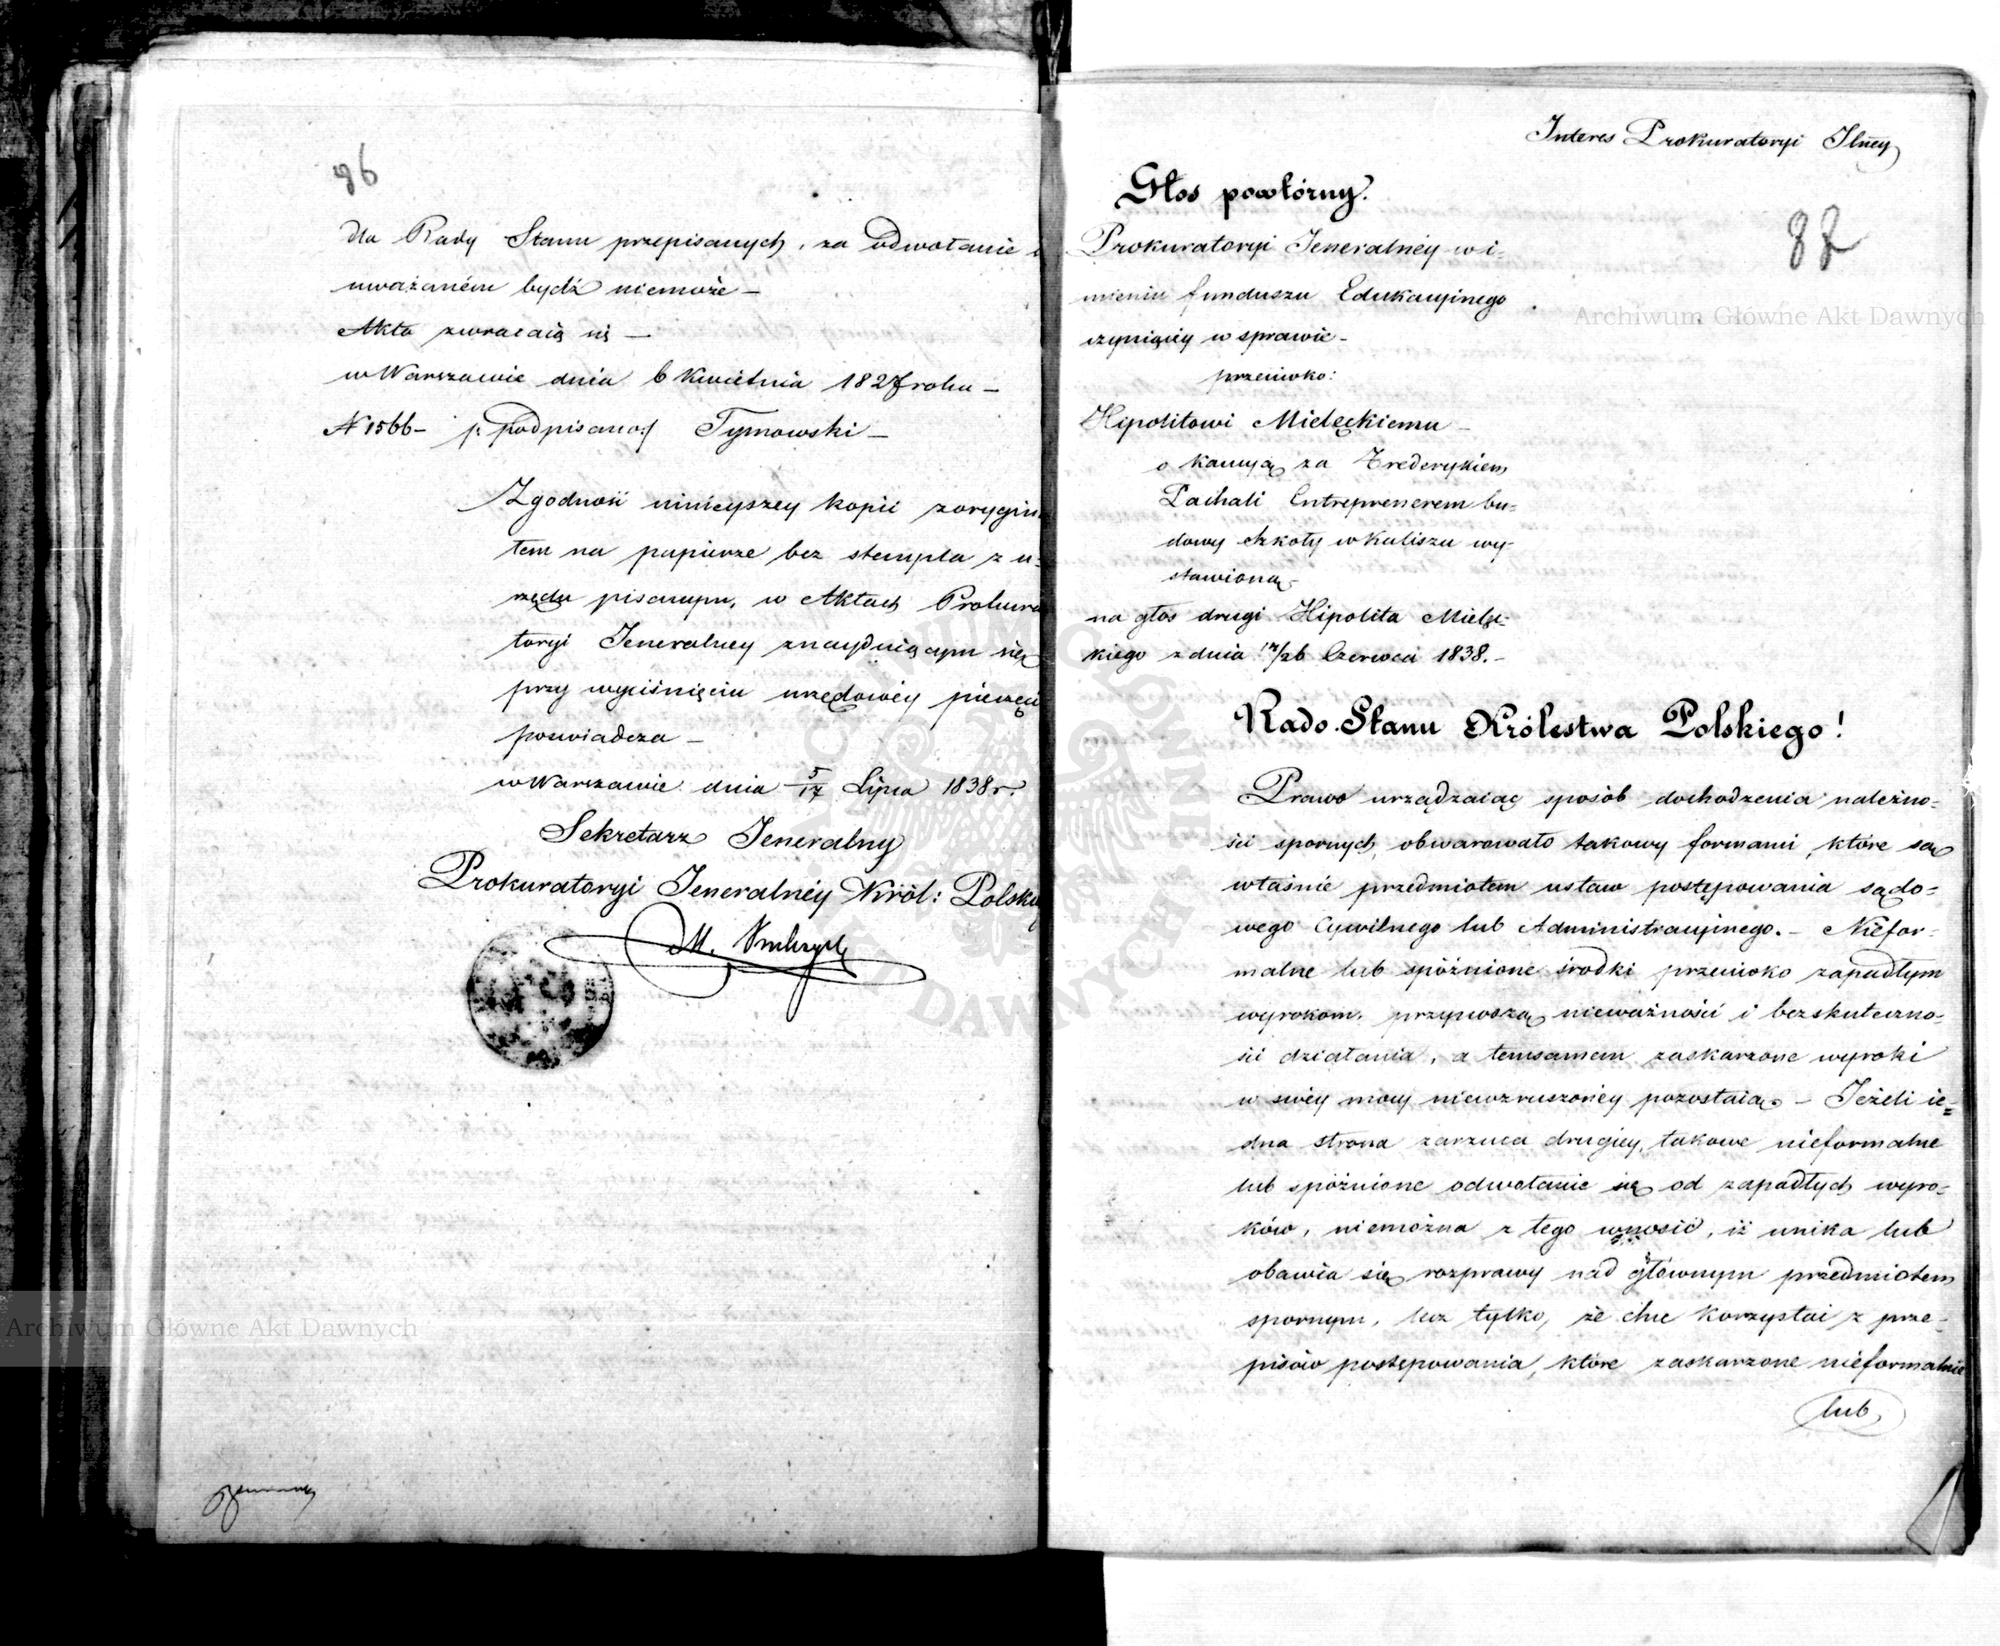 86
dla Rady Stanu przepisanych, za odwołanie
uważaném bydź niemoże —
Akta zwracaią się —
w Warszawie dnia 6 Kwietnia 1827 roku —
N 1566 — podpisano Tymowski —
Zgodność ninieyszey kopii z orygina
łem na papierze bez stempla z u-
rzędu pisanym, w Aktach Prokura
toryi Jeneralney znayduiącym się
przy wyciśnięciu urzędowéy pieczęci
poswiadcza —
w Warszawie dnia 5/17 Lipca 1838 r.
Sekretarz Jeneralny
Prokuratoryi Jeneralnéy Król: Polskiey
M.
Interes Prokuratoryi Jlney
Głos powtórny.
87
Prokuratoryi Jeneralnéy w i-
mieniu funduszu Edukacyinego
czyniącey w sprawie -
przeciwko:
Hipolitowi Mielęckiemu —
o kaucyą za Frederykiem
Pachali Entreprenerem bu-
dowy szkoły w Kaliszu wy-
stawioną -
na głos drugi Hipolita Mielę-
kiego z dnia 14/26 Czerwca 1838. -
Rado Stanu Królestwa Polskiego!
Prawo urządzaiąc sposób dochodzenia należno-
ści spornych, obwarowało takowy formami, które są
właśnie przedmiotem ustaw postępowania sądo-
wego Cywilnego lub Administracyinego. - Niefor-
malne lub spóźnione środki przeciwko zapadłym
wyrokom, nieważności i bezskuteczno-
ści działania, a temsamem zaskarzone wyroki
w swéy mocy niewzruszonéy pozostaią - Jeżeli ie-
dna strona zarzuca drugiey, takowe nieformalne
lub spóźnione odwołanie się od zapadłych wyro-
ków, niemożna z tego wnosić, iż unika lub
obawia się rozprawy nad głównym przedmiotem
spornym, lecz tylko, że chce korzystać z prze-
pisów postępowania, które zaskarzone nieformalnie
lub
Archiwum Główne Akt Dawnych
Archiwum Główne Akt Dawnych